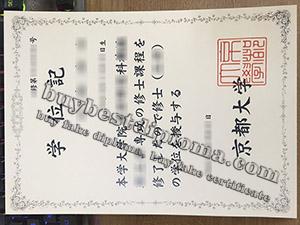 修第 号
学位記
日生
本学大学院 科
専攻の修士課程を
修了したので修士（ ）
の学位を授与する
日
京都大学
buybestdiploma.com
buy fake diploma, buy fake certificate